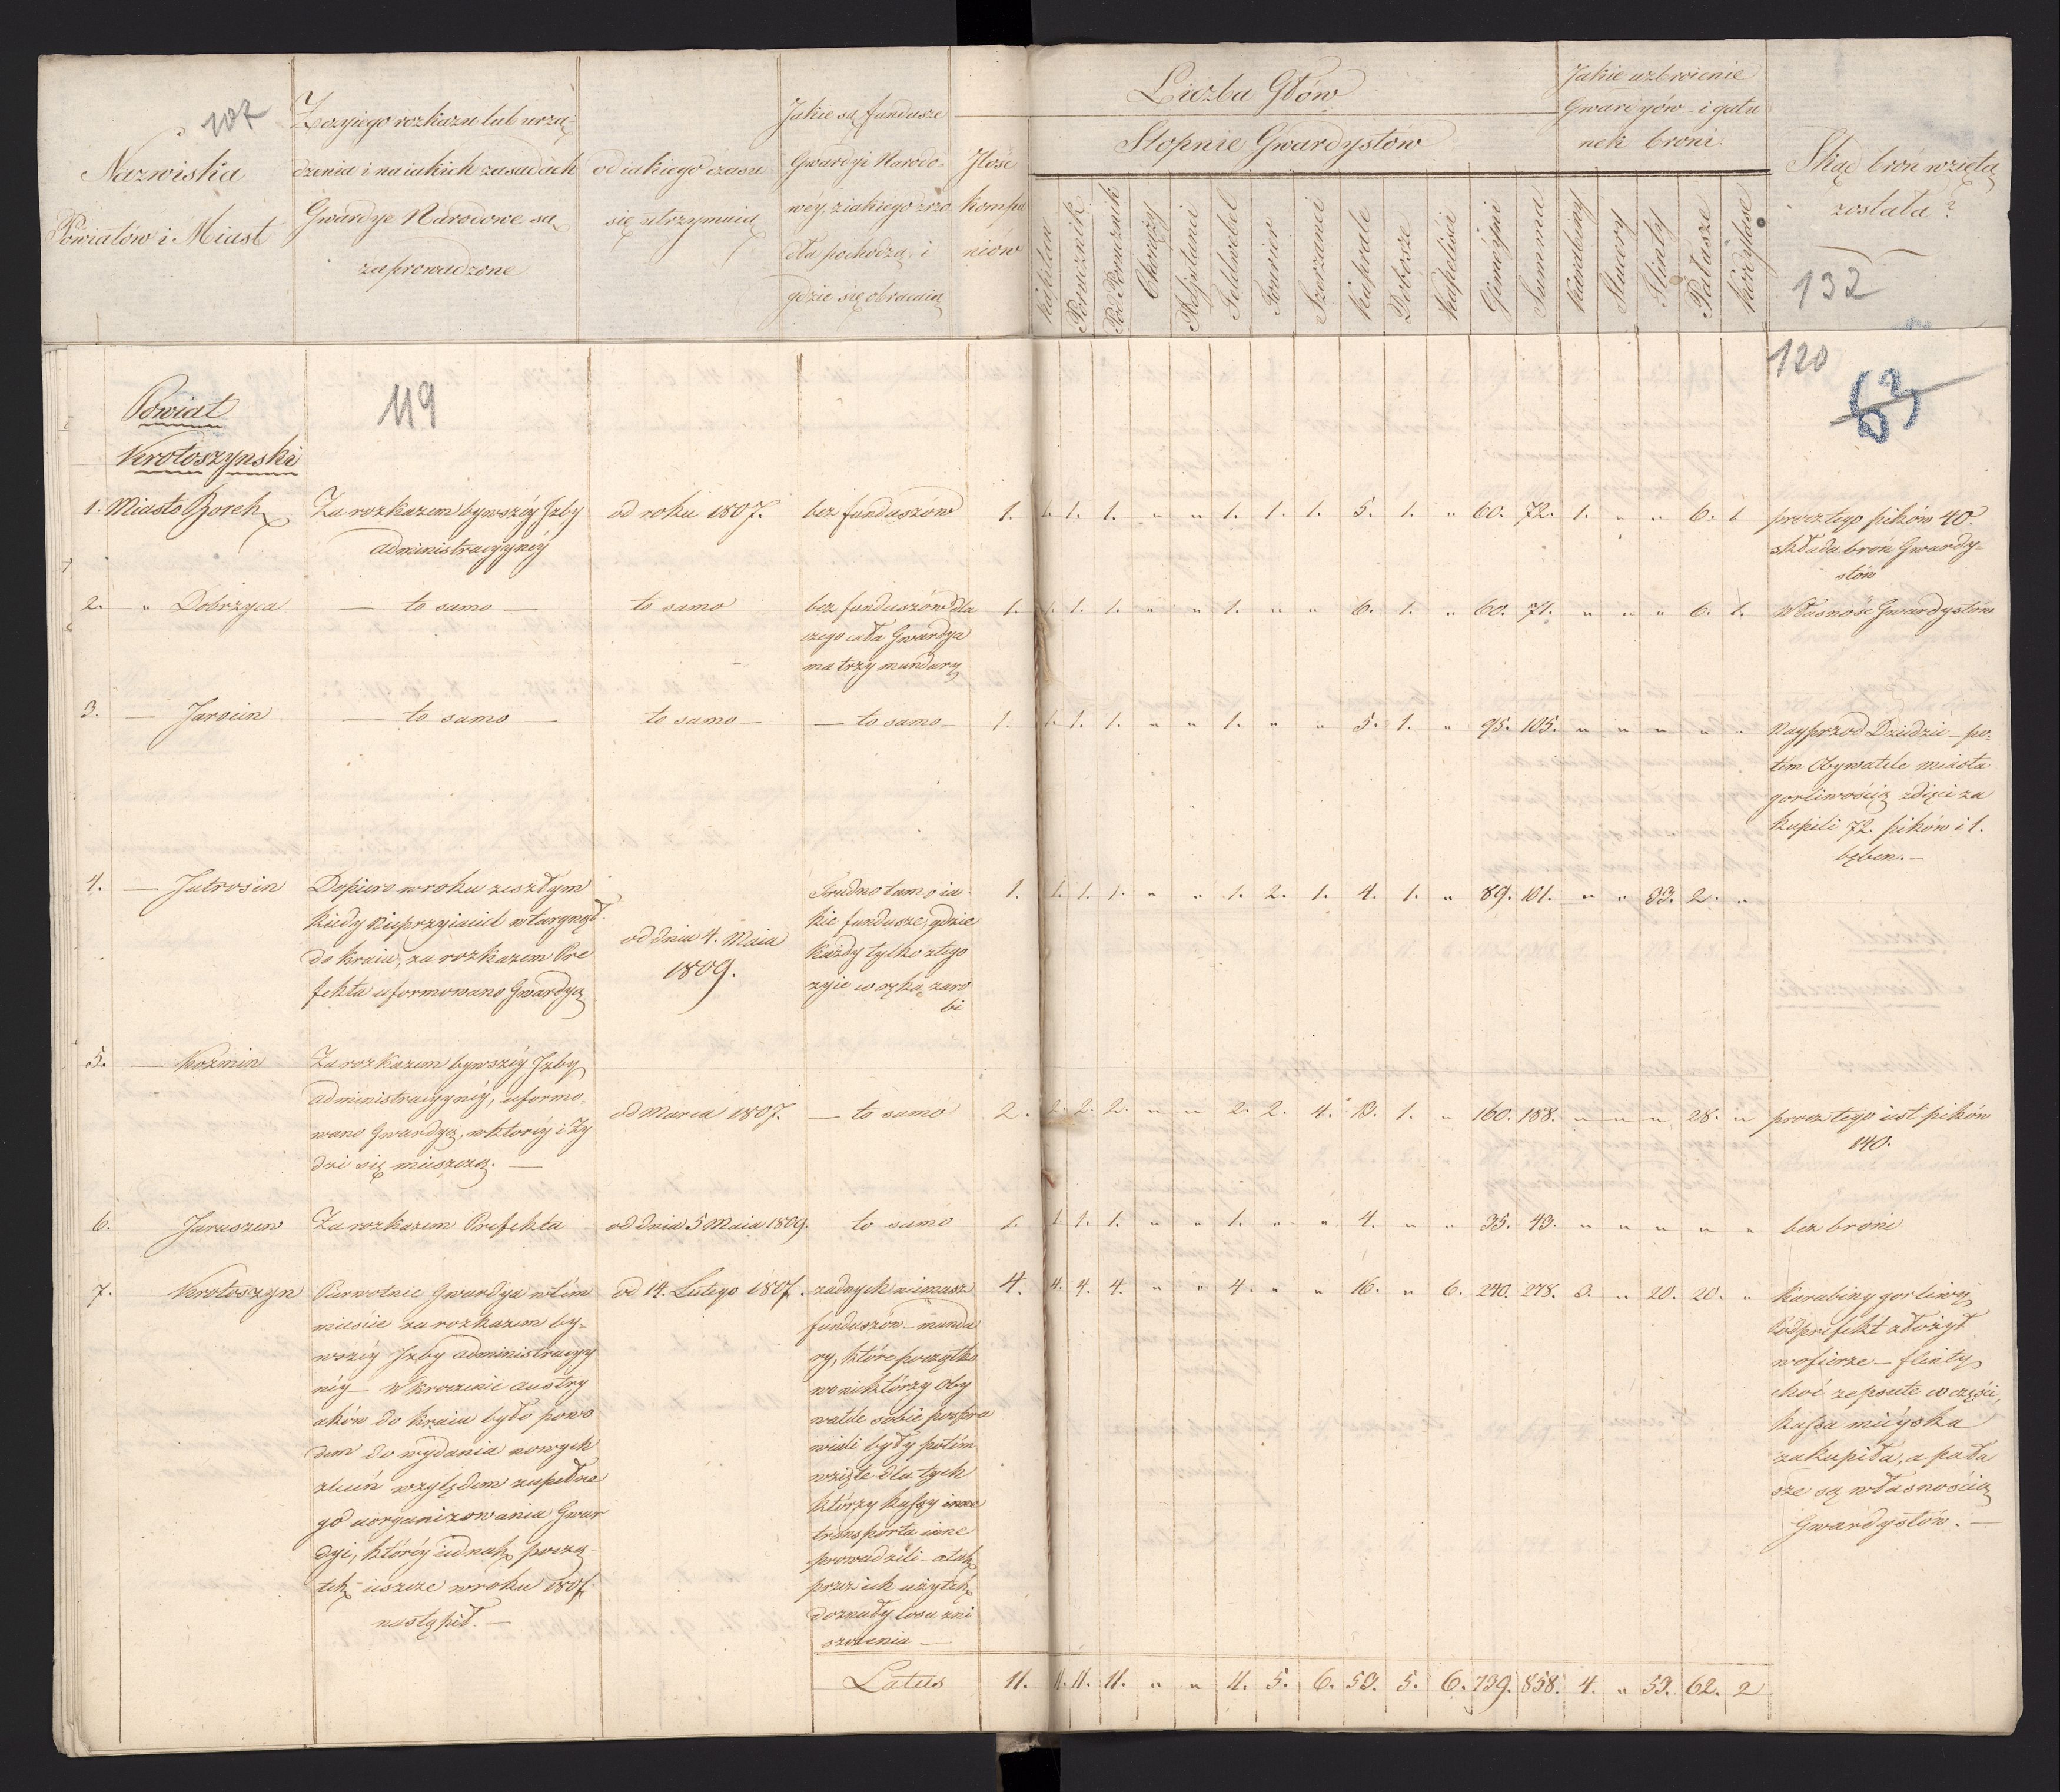 107
Nazwiska
Powiatów i Miast
Z czyiego rozkazu lub urzą-
dzenia i na iakich zasadach
Gwardye Narodowe są
zaprowadzone
od iakiego czasu
się utrzymuią
Jakie są fundusze
Gwardyi Narodo-
wéy, z iakiego źrzo
dła pochodzą, i
gdzie się obracaią
Jlość
kompa
niów
Liczba Głów
Stopnie Gwardystów
Kapitan
Porucznik
Pod Porucznik
Chorąży
Adjutanci
Feldwebel
Fourier
Szerzanci
Kaprale
Dobosze
Kapeliści
Gimeyni
Summa
Jakie uzbroienie
Gwardyów i gatu
nek broni
Karabiny
Stucery
Flinty
Pałasze
Kordylase
Skąd broń wzięta
została?
132
119
120
Powiat
Krotoszynski
1. Miasto Borek
Za rozkazem bywszéy Jzby
administracyynéy
od roku 1807.
bez funduszów
1. 1. 1. 1. " " 1. 1. 1. 5. 1. " 60. 72. 1. " " 6. 1
procz tego pików 40.
składa broń Gwardy-
stów
2. — " Dobrzyca
— to samo —
to samo
bez funduszów dla
czego cała Gwardya
ma trzy mundury
1. 1. 1. 1. " " 1. " " 6. 1. " 60. 71. " " " 6. 1.
Własność Gwardystów
3. — Jarocin
— to samo —
to samo —
— to samo —
1. 1. 1. 1. " " 1. " " 5. 1. " 95. 105. " " " " "
Nayprzod Dziedzic — po-
tém Obywatele miasta
gorliwością zdięci za
kupili 72. pików i 1.
bęben. —
4. — Jutrosin
Dopiero w roku zeszłym
kiedy Nieprzyiaciel wtargnął
do kraiu, za rozkazem Pre
fekta uformowano Gwardyą
od dnia 4. Maia
1809.
Trudno tam o ia
kie fundusze, gdzie
każdy tylko z tego
żyie co ręką zaro
bi
1. 1. 1. 1. " " 1. 2. 1. 4. 1. " 89. 101. " " 33. 2. "
5. — Kozmin
Za rozkazem bywszéy Jzby
administracyynéy, uformo-
wano Gwardyą, w któréy i Ży
dzi się mieszczą. —
od Marca 1807.
— to samo
2. 2. 2. 2. " " 2. 2. 4. 13. 1. " 160. 188. " " " 28. "
procz tego iest pików
140.
6. Jaraszew
Za rozkazem Prefekta
od dnia 5 Maia 1809.
to samo
1. 1. 1. 1. " " 1. " " 4. " " 35. 43. " " " " "
bez broni
7. Krotoszyn
Pierwotnie Gwardya w tém
mieście za rozkazem by-
wszéy Jzby administracyy
néy — Wkroczenie austry
aków do kraiu było powo
dem do wydania nowych
zleceń względem zupełne
go uorganizowania Gwar
dyi, któréy iednak począ-
tek ieszcze w roku 1807.
nastąpił. —
od 14. Lutego 1807.
żadnych niemasz
funduszów — mundu
ry, które początko
wo niektórzy Oby
watele sobie pospra
wiali były potém
wzięte dla tych
którzy kassy
transporta inne
prowadzili — a tak
przez ich użytek
doznały losu zni
szczenia —
4. 4. 4. 4. " " 4. " " 16. " 6. 240. 278. 3. " 20. 20. "
Karabiny gorliwy
Podprefekt złożył
w ofierze — flinty
choć zepsute w części,
kassa mieyska
zakupiła, a pała
sze są własnością
Gwardystów. —
Latus
11. 11. 11. 11. " " 11. 5. 6. 53. 5. 6. 739. 858. 4. " 53. 62. 2